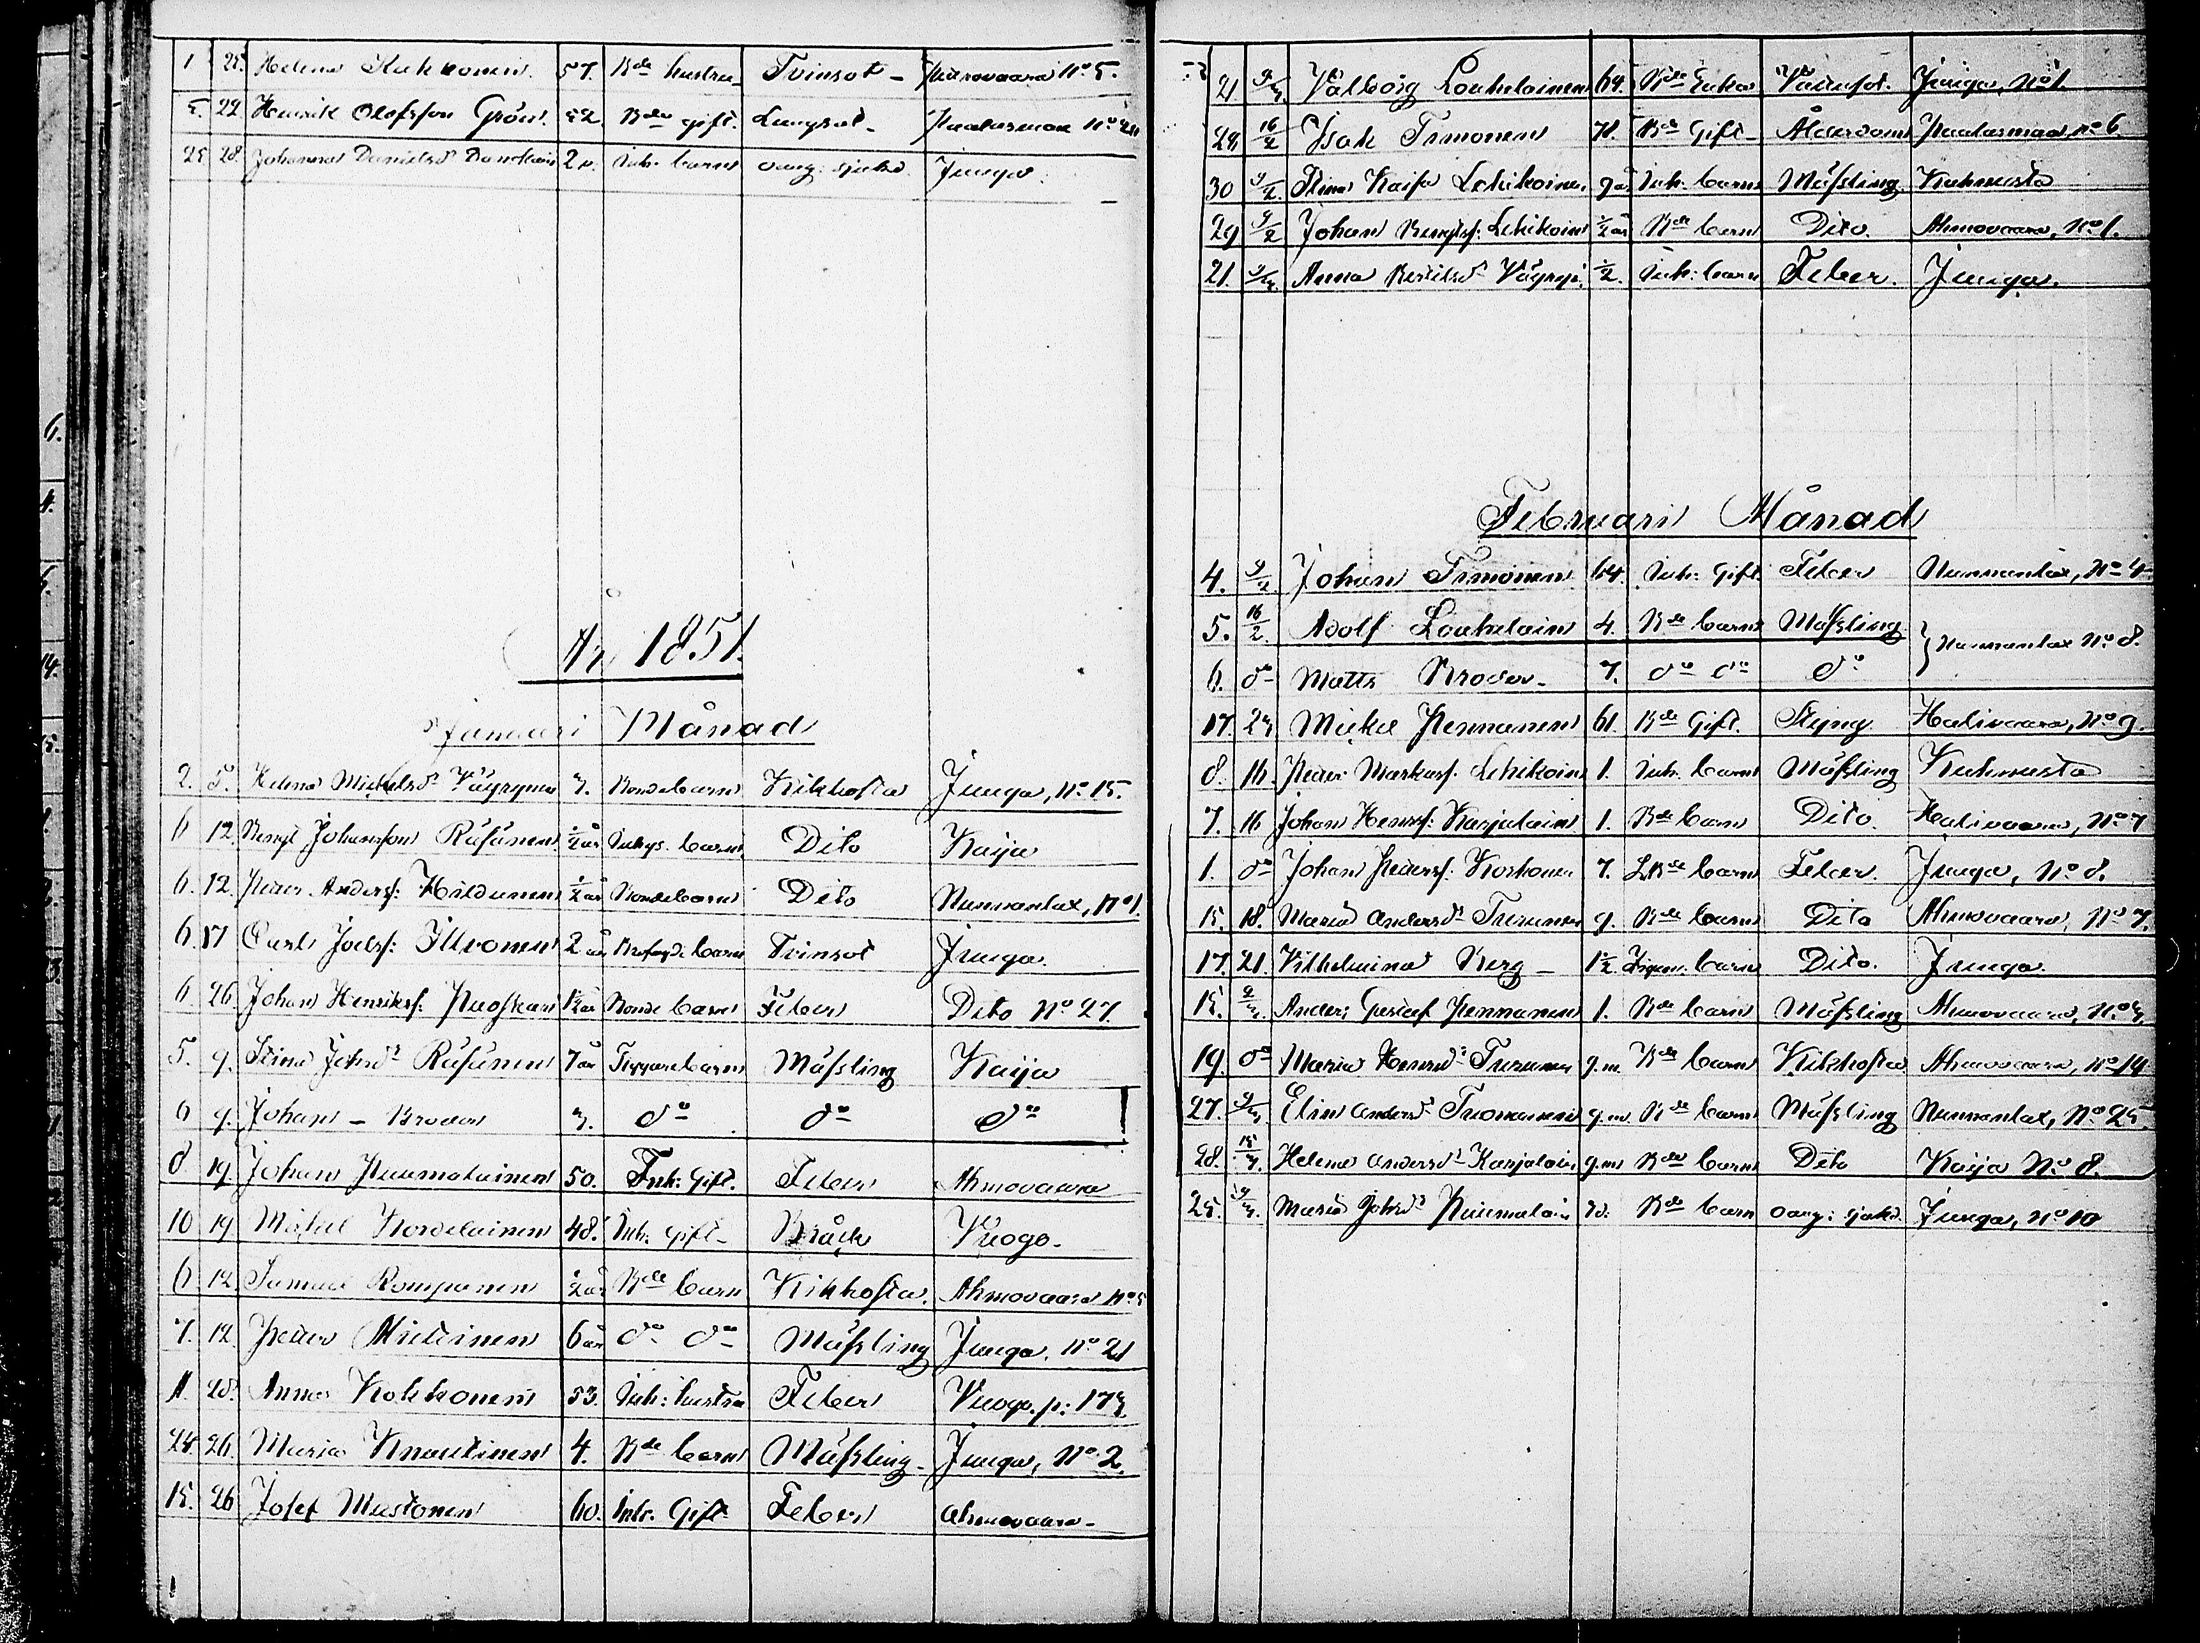 1 28. Helena Kukkonen. 57. Bde hustru Tvinsot - Puirovaara No 5.
5. 22. Henrik Olofsson Grön. 52. Bde gift. Lungsot - Paalasmaa No
25 28. Johanna Danielsdr 2 v. Inh: barn oang: sjukd. Juuga.
År 1851.
Januari Månad
2. 5. Helena Michelsdr Väyrynen 3. Bondebarn Kikhosta Juuga, No 15.
6 12. Bengt Johansson Räsänen ½ år Inhys. barn Dito Kaija
6. 12. Petter Andersf: Hildunen ½ år Bondebarn Dito Nunnanlax, No 1.
6. 17 Carl Joelsf: Illvonen 2 år barn Tvinsot Juuga.
6. 26. Johan Henriksf: Puoskari 1½ år Bonde barn Feber Dito No 27.
5. 9. Stina Johsdr Räsänen 7 år barn Mässling Kaija
6 9. Johan - Broder 3. do do do
8 19. Johan Puumalainen 50. Inh: Gift. Feber Ahmovaara
10 19 Mikael Kordelainen 48. Inh: gift - Bråck Vuogo.
6 12 Samuel Romppanen ½ år Bde barn Kikhosta. Ahmovaara No 5
7. 12. Petter Miettinen 6 år do do Mässling Juuga. No 21
11. 28. Anna Kokkonen 53. Inh: hustru Feber Vuogo. p: 173.
24. 26. Maria Knuutinen 4. Bde barn Mässling - Juuga, No 2.
15. 26 Josef Mustonen 60. Inh. Gift Feber Ahmovaara -
21 9/3. Valborg Louhelainen 64. Bde Enka Vattusot. Juuga, No 1.
24. 16/2 Isak Timonen 78. Bde Gift - Ålderdom Paalasmaa, No 6
30 9/2. Stina Kaisa Lehikoinen 9 år Inh: barn Mässling Kuhnusta
29 9/2 Johan Bengtsf: Lehikoin ½ år Bde barn Dito. Ahmovaara, No 1.
21. 9/3. Anna Bertilsdr Väyryn: ½. Inh: barn Feber. Juuga.
Februari Månad
4. 9/2. Johan Timonen 64. Inh: Gift Feber Nunnanlax, No 4
5. 16/2. Adolf Louhelain 4. Bde barn Mässling } Nunnanlax No 8.
6. do Matts Broder - 7. do do do
17. 23 Mickel Pennanen 61. Bde Gift. Styng. Halivaara, No 9.
8. 16. Petter Markusf. Lehikoin 1. Inh. barn Mässling Kuhnusta
7. 16 Johan Henrsf: Karjalain 1. Bde barn Dito. Halivaara, No 7
1. do Johan Pettersf. Korhonen 7. LBde barn Feber. Juuga, No 8.
15. 18. Maria Andersdr Turunen 9. Bde barn Dito Ahmovaara, No 7.
17. 21. Vilhelmina Berg - 1½ barn Dito. Juuga.
15. 2/3. Anders Gustaf Pennanen 1. Bde barn Mässling Ahmovaara, No 3.
19. do Maria Henrsdr Turunen 9.m. Bde barn Kikhosta Ahmovaara, No 14
27. 9/3. Elin Andersdr Tuomainen 9.m. Bde barn Mässling Nunnanlax, No 25.
28. 15/3. Helena Andersdr Karjalain 9.m Bde barn Dito Kaija No 8.
25. 9/3. Maria Johsdr Puumalain Bde barn oang: sjukd. Juuga, No 10